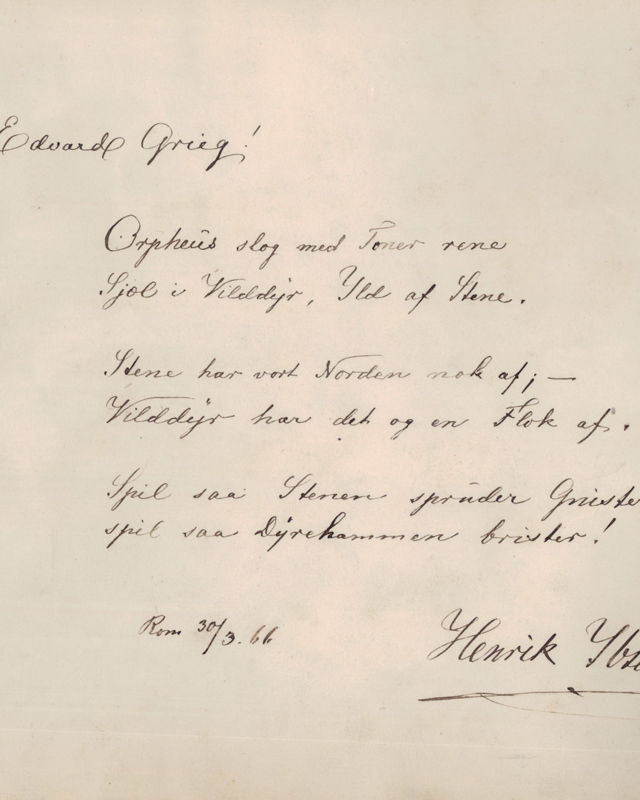 Edvard Grieg!
Orpheüs slog med Toner rene
Sjæl i Vilddÿr, Yld af Stene.
Stene har vort Norden nok af; —
Vilddÿr har det og en Flok af.
Spil saa Stenen sprüder Gniste
spil saa Dÿrehammen brister!
Rom 30/3. 66
Henrik Ybse